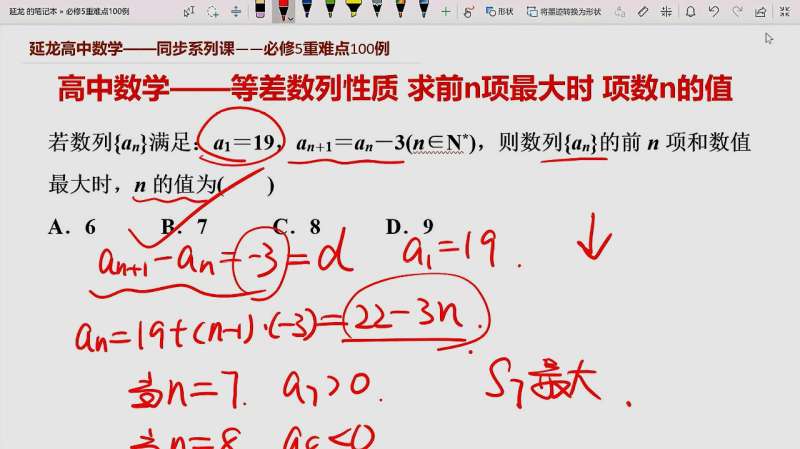 延龙 的笔记本 » 必修5重难点100例
形状
将墨迹转换为形状
延龙高中数学——同步系列课——必修5重难点100例
高中数学——等差数列性质 求前n项最大时 项数n的值
若数列{aₙ}满足：a₁＝19，aₙ₊₁＝aₙ－3(n∈N*)，则数列{aₙ}的前 n 项和数值
最大时，n 的值为(　　)
A．6　B．7　C．8　D．9
aₙ₊₁－aₙ＝－3＝d　a₁＝19．　↓
aₙ＝19＋(n－1)·(－3)＝22－3n．
当n＝7．　a₇＞0．　S₇最大．
当n＝8　a₈＜0